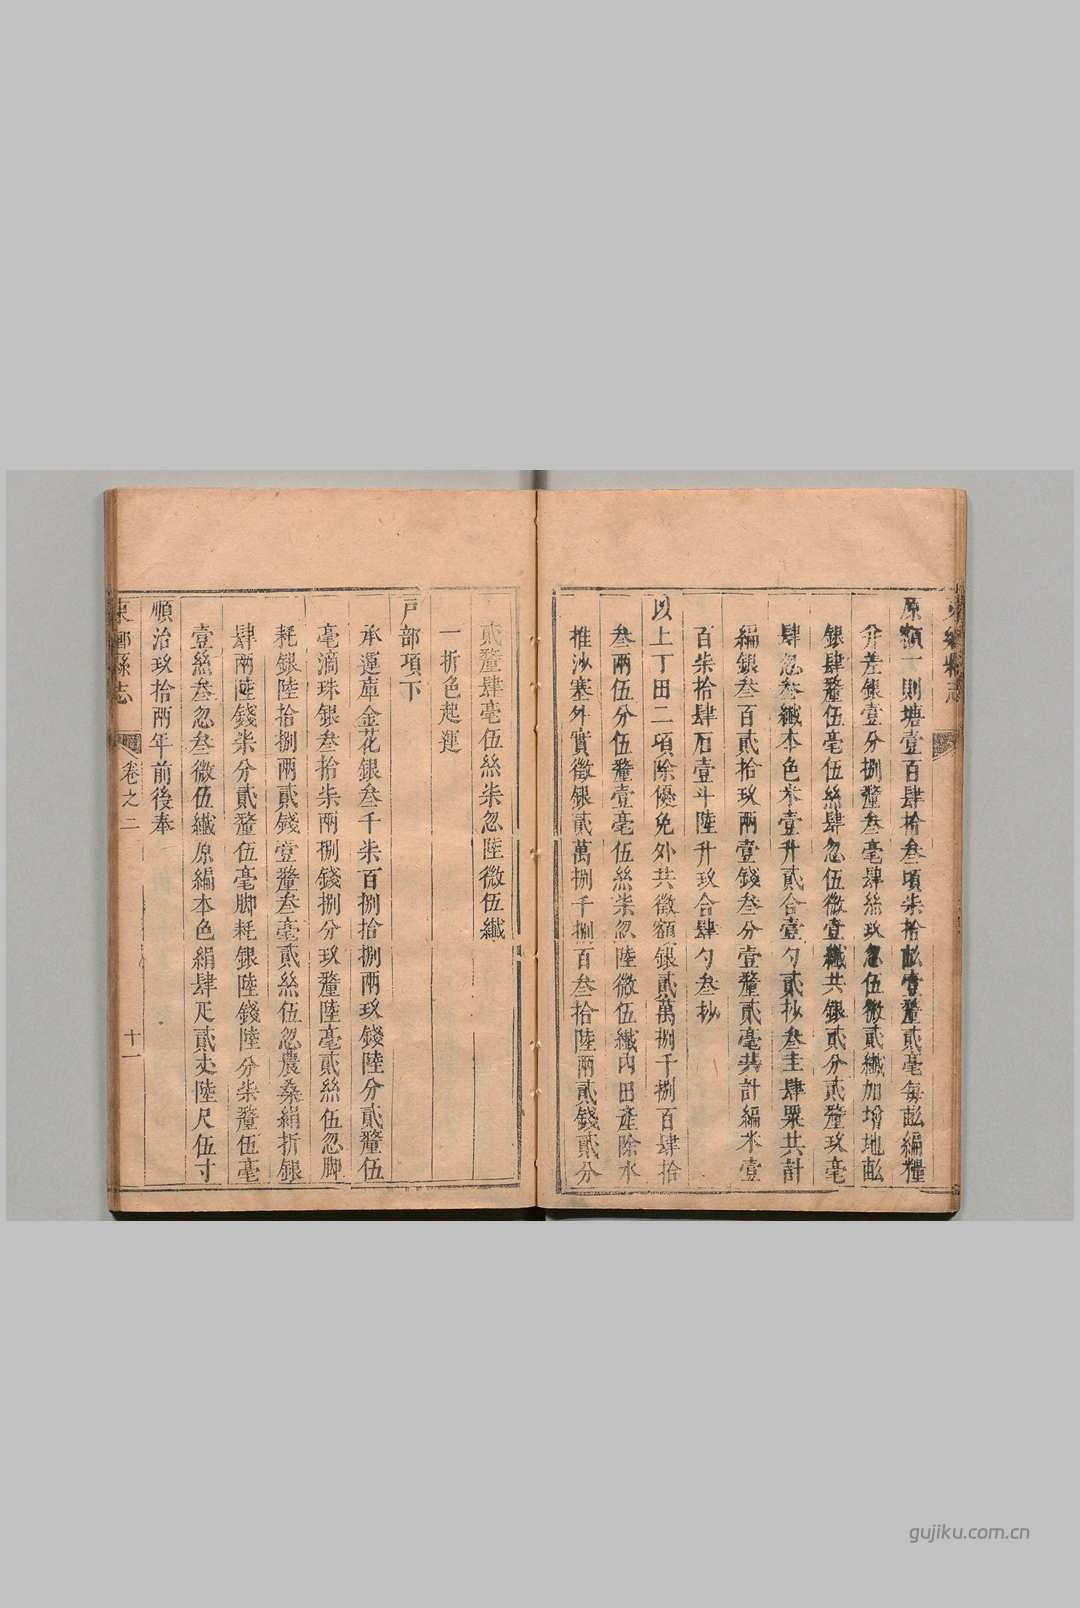 原額一則塘壹百肆拾叁頃柒拾畝壹釐貳毫每畝編糧
分差銀壹分捌釐叁毫肆絲玖忽伍微貳纖加增地畝
銀肆釐伍毫伍絲肆忽伍微壹纖共銀貳分貳釐玖毫
肆忽叁纖本色米壹升貳合壹勺貳抄叁圭肆粟共計
編銀叁百貳拾玖兩壹錢叁分壹釐貳毫共計編米壹
百柒拾肆石壹斗陸升玖合肆勺叁抄
以上丁田二項除優免外共徵額銀貳萬捌千捌百肆拾
叁兩伍分伍釐壹毫伍絲柒忽陸微伍纖內田產除水
推沙塞外實徵銀貳萬捌千捌百叁拾陸兩貳錢貳分
貳釐肆毫伍絲柒忽陸微伍纖
一折色起運
戶部項下
承運庫金花銀叁千柒百捌拾捌兩玖錢陸分貳釐伍
毫滴珠銀叁拾柒兩捌錢捌分玖釐陸毫貳絲伍忽脚
耗銀陸拾捌兩貳錢壹釐叁毫貳絲伍忽農桑絹折銀
肆兩陸錢柒分貳釐伍毫脚耗銀陸錢陸分柒釐伍毫
壹絲叁忽叁微伍纖原編本色絹肆疋貳丈陸尺伍寸
順治玖拾兩年前後奉
東鄉縣志
卷之二
十一
gujiku.com.cn